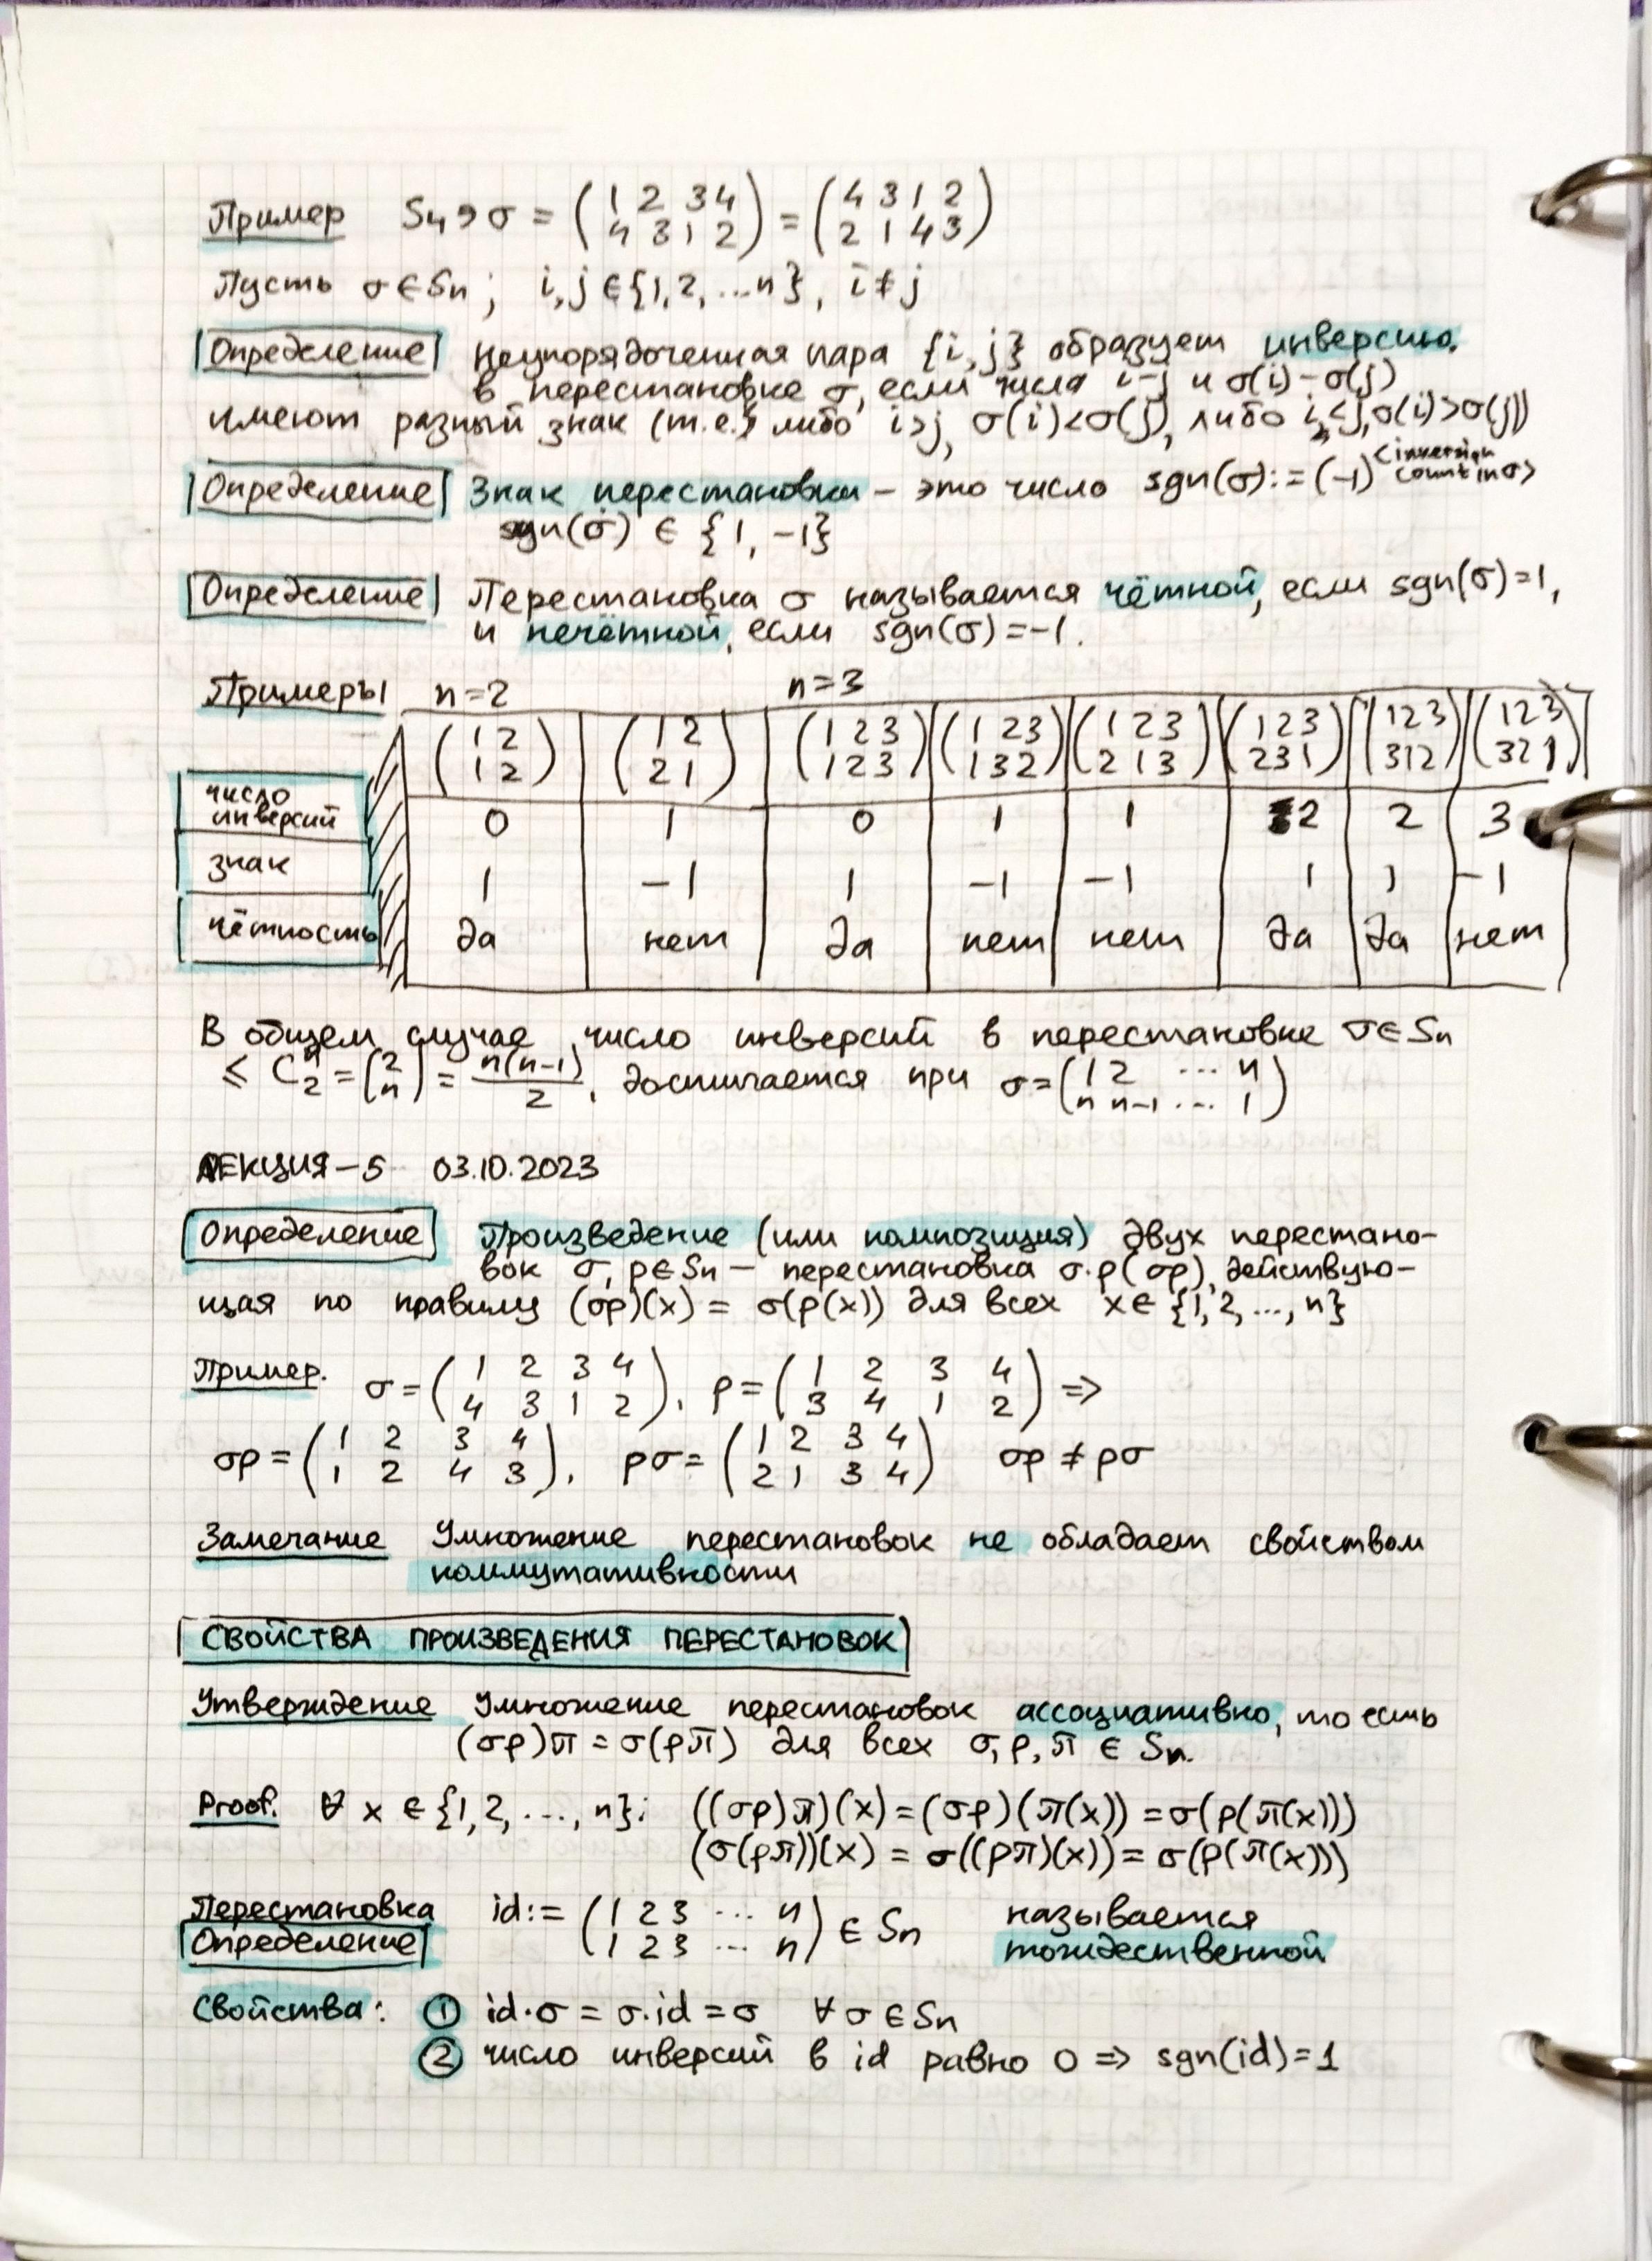 Пример S₄ ∋ σ = (1 2 3 4 / 4 3 1 2) = (4 3 1 2 / 2 1 4 3)
Пусть σ ∈ Sn; i, j ∈ {1, 2, ... n}, i ≠ j
Определение Неупорядоченная пара {i, j} образует инверсию
в перестановке σ, если числа i-j и σ(i)-σ(j)
имеют разный знак (т.е. либо i>j, σ(i)<σ(j), либо i<j, σ(i)>σ(j))
Определение Знак перестановки – это число sgn(σ) := (-1)^<inversion count in σ>
sgn(σ) ∈ {1, -1}
Определение Перестановка σ называется чётной, если sgn(σ)=1,
и нечётной, если sgn(σ)=-1.
Примеры n=2 n=3
(1 2 / 1 2) (1 2 / 2 1) (1 2 3 / 1 2 3) (1 2 3 / 1 3 2) (1 2 3 / 2 1 3) (1 2 3 / 2 3 1) (1 2 3 / 3 1 2) (1 2 3 / 3 2 1)
число инверсий 0 1 0 1 1 2 2 3
знак 1 -1 1 -1 -1 1 1 -1
чётность да нет да нет нет да да нет
В общем случае число инверсий в перестановке σ ∈ Sn
≤ C₂ⁿ = (2 / n) = n(n-1)/2, достигается при σ = (1 2 ... n / n n-1 ... 1)
ЛЕКЦИЯ-5 03.10.2023
Определение Произведение (или композиция) двух перестано-
вок σ, ρ ∈ Sn – перестановка σ·ρ (σρ), действую-
щая по правилу (σρ)(x) = σ(ρ(x)) для всех x ∈ {1, 2, ..., n}
Пример. σ = (1 2 3 4 / 4 3 1 2), ρ = (1 2 3 4 / 3 4 1 2) ⇒
σρ = (1 2 3 4 / 1 2 4 3), ρσ = (1 2 3 4 / 2 1 3 4) σρ ≠ ρσ
Замечание Умножение перестановок не обладает свойством
коммутативности
СВОЙСТВА ПРОИЗВЕДЕНИЯ ПЕРЕСТАНОВОК
Утверждение Умножение перестановок ассоциативно, то есть
(σρ)π = σ(ρπ) для всех σ, ρ, π ∈ Sn.
Proof. ∀ x ∈ {1, 2, ..., n}: ((σρ)π)(x) = (σρ)(π(x)) = σ(ρ(π(x)))
(σ(ρπ))(x) = σ((ρπ)(x)) = σ(ρ(π(x)))
Перестановка id := (1 2 3 ... n / 1 2 3 ... n) ∈ Sn называется
Определение тождественной
Свойства: ① id·σ = σ·id = σ ∀ σ ∈ Sn
② число инверсий в id равно 0 ⇒ sgn(id)=1